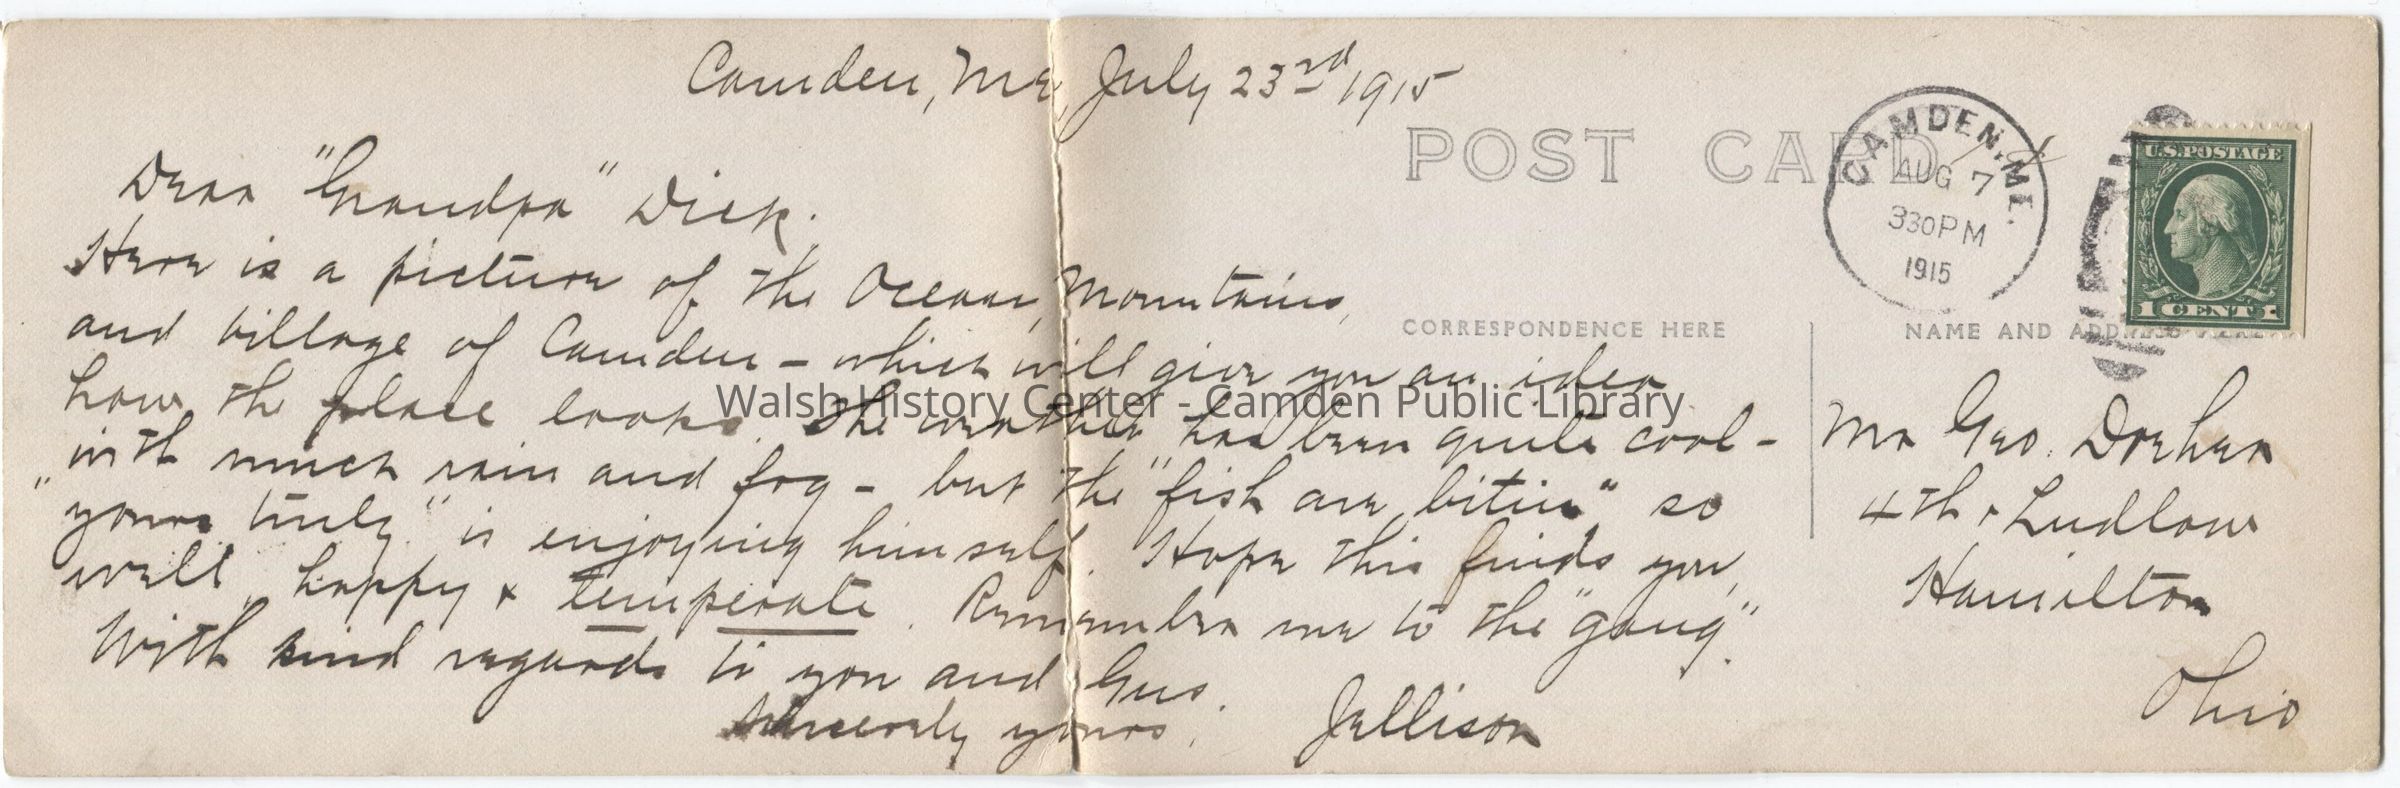 Camden, Me, July 23rd 1915
POST CARD
CAMDEN, ME.
AUG 7
330PM
1915
U.S. POSTAGE
1 CENT 1
Dear "Grandpa" Dick.
Here is a picture of the Ocean, Mountains,
and Village of Camden - which will give you an idea
how the place looks. The weather has been quite cool -
with much rain and fog - but the "fish are bitin" so
"yours truly" is enjoying himself. Hope this finds you,
well, happy & temperate. Remember me to the "gang".
With kind regards to you and Gus.
Sincerely yours,
Jellison
CORRESPONDENCE HERE
NAME AND ADDRESS HERE
Mr Geo.
4th & Ludlow
Hamilton
Ohio
Walsh History Center - Camden Public Library